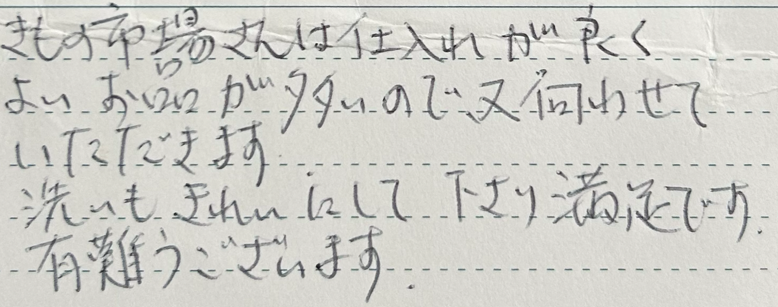 きもの市場さんは仕入れが良く
よいお品が多いので、又伺わせて
いただきます.
洗いもきれいにして下さり満足です.
有難うございます.